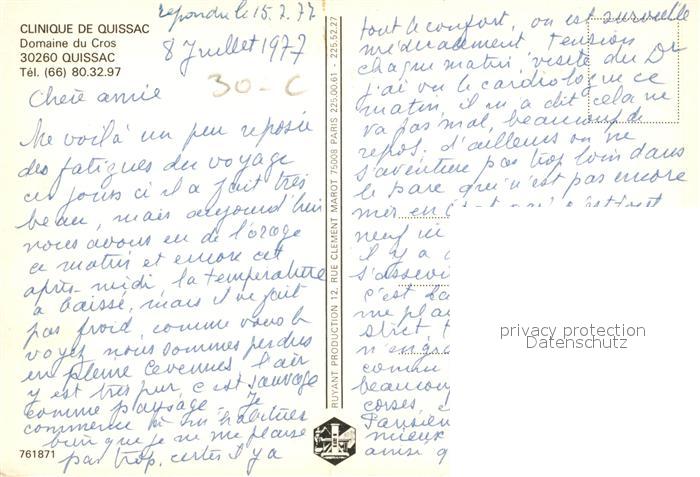 répondu le 15.7.77
CLINIQUE DE QUISSAC
Domaine du Cros
30260 QUISSAC
Tél. (66) 80.32.97
8 Juillet 1977
30-C
Chère amie
Me voilà un peu reposée
des fatigues du voyage
ces jours ci il a fait très
beau, mais aujourd'hui
nous avons eu de l'orage
ce matin et encore cet
après-midi, la température
a baissé, mais il ne fait
pas froid, comme vous le
voyez nous sommes perdus
en pleine Cévennes l'air
y est très pur c'est sauvage
comme paysage. Je
commence à m'habituer
bien que je ne me plaise
pas trop, certes il y a
761871
RUYANT PRODUCTION 12, RUE CLEMENT MAROT 75008 PARIS 225.00.61 - 225.52.27
tout le confort, on est surveillé
médicalement tension
chaque matin, visite du Dr
j'ai vu le cardiologue ce
matin, il m'a dit cela ne
va pas mal, beaucoup de
repos, d'ailleurs on ne
s'aventure pas trop loin dans
le parc qui n'est pas encore
mis en
neuf
il y a
s'asseoir
c'est
me pla
strict
n'en
comm
beaucoup
corses,
Parisien
mieux
ainsi q
privacy protection
Datenschutz